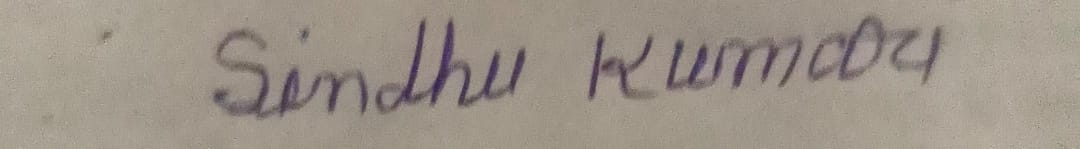 Sindhu Kumar